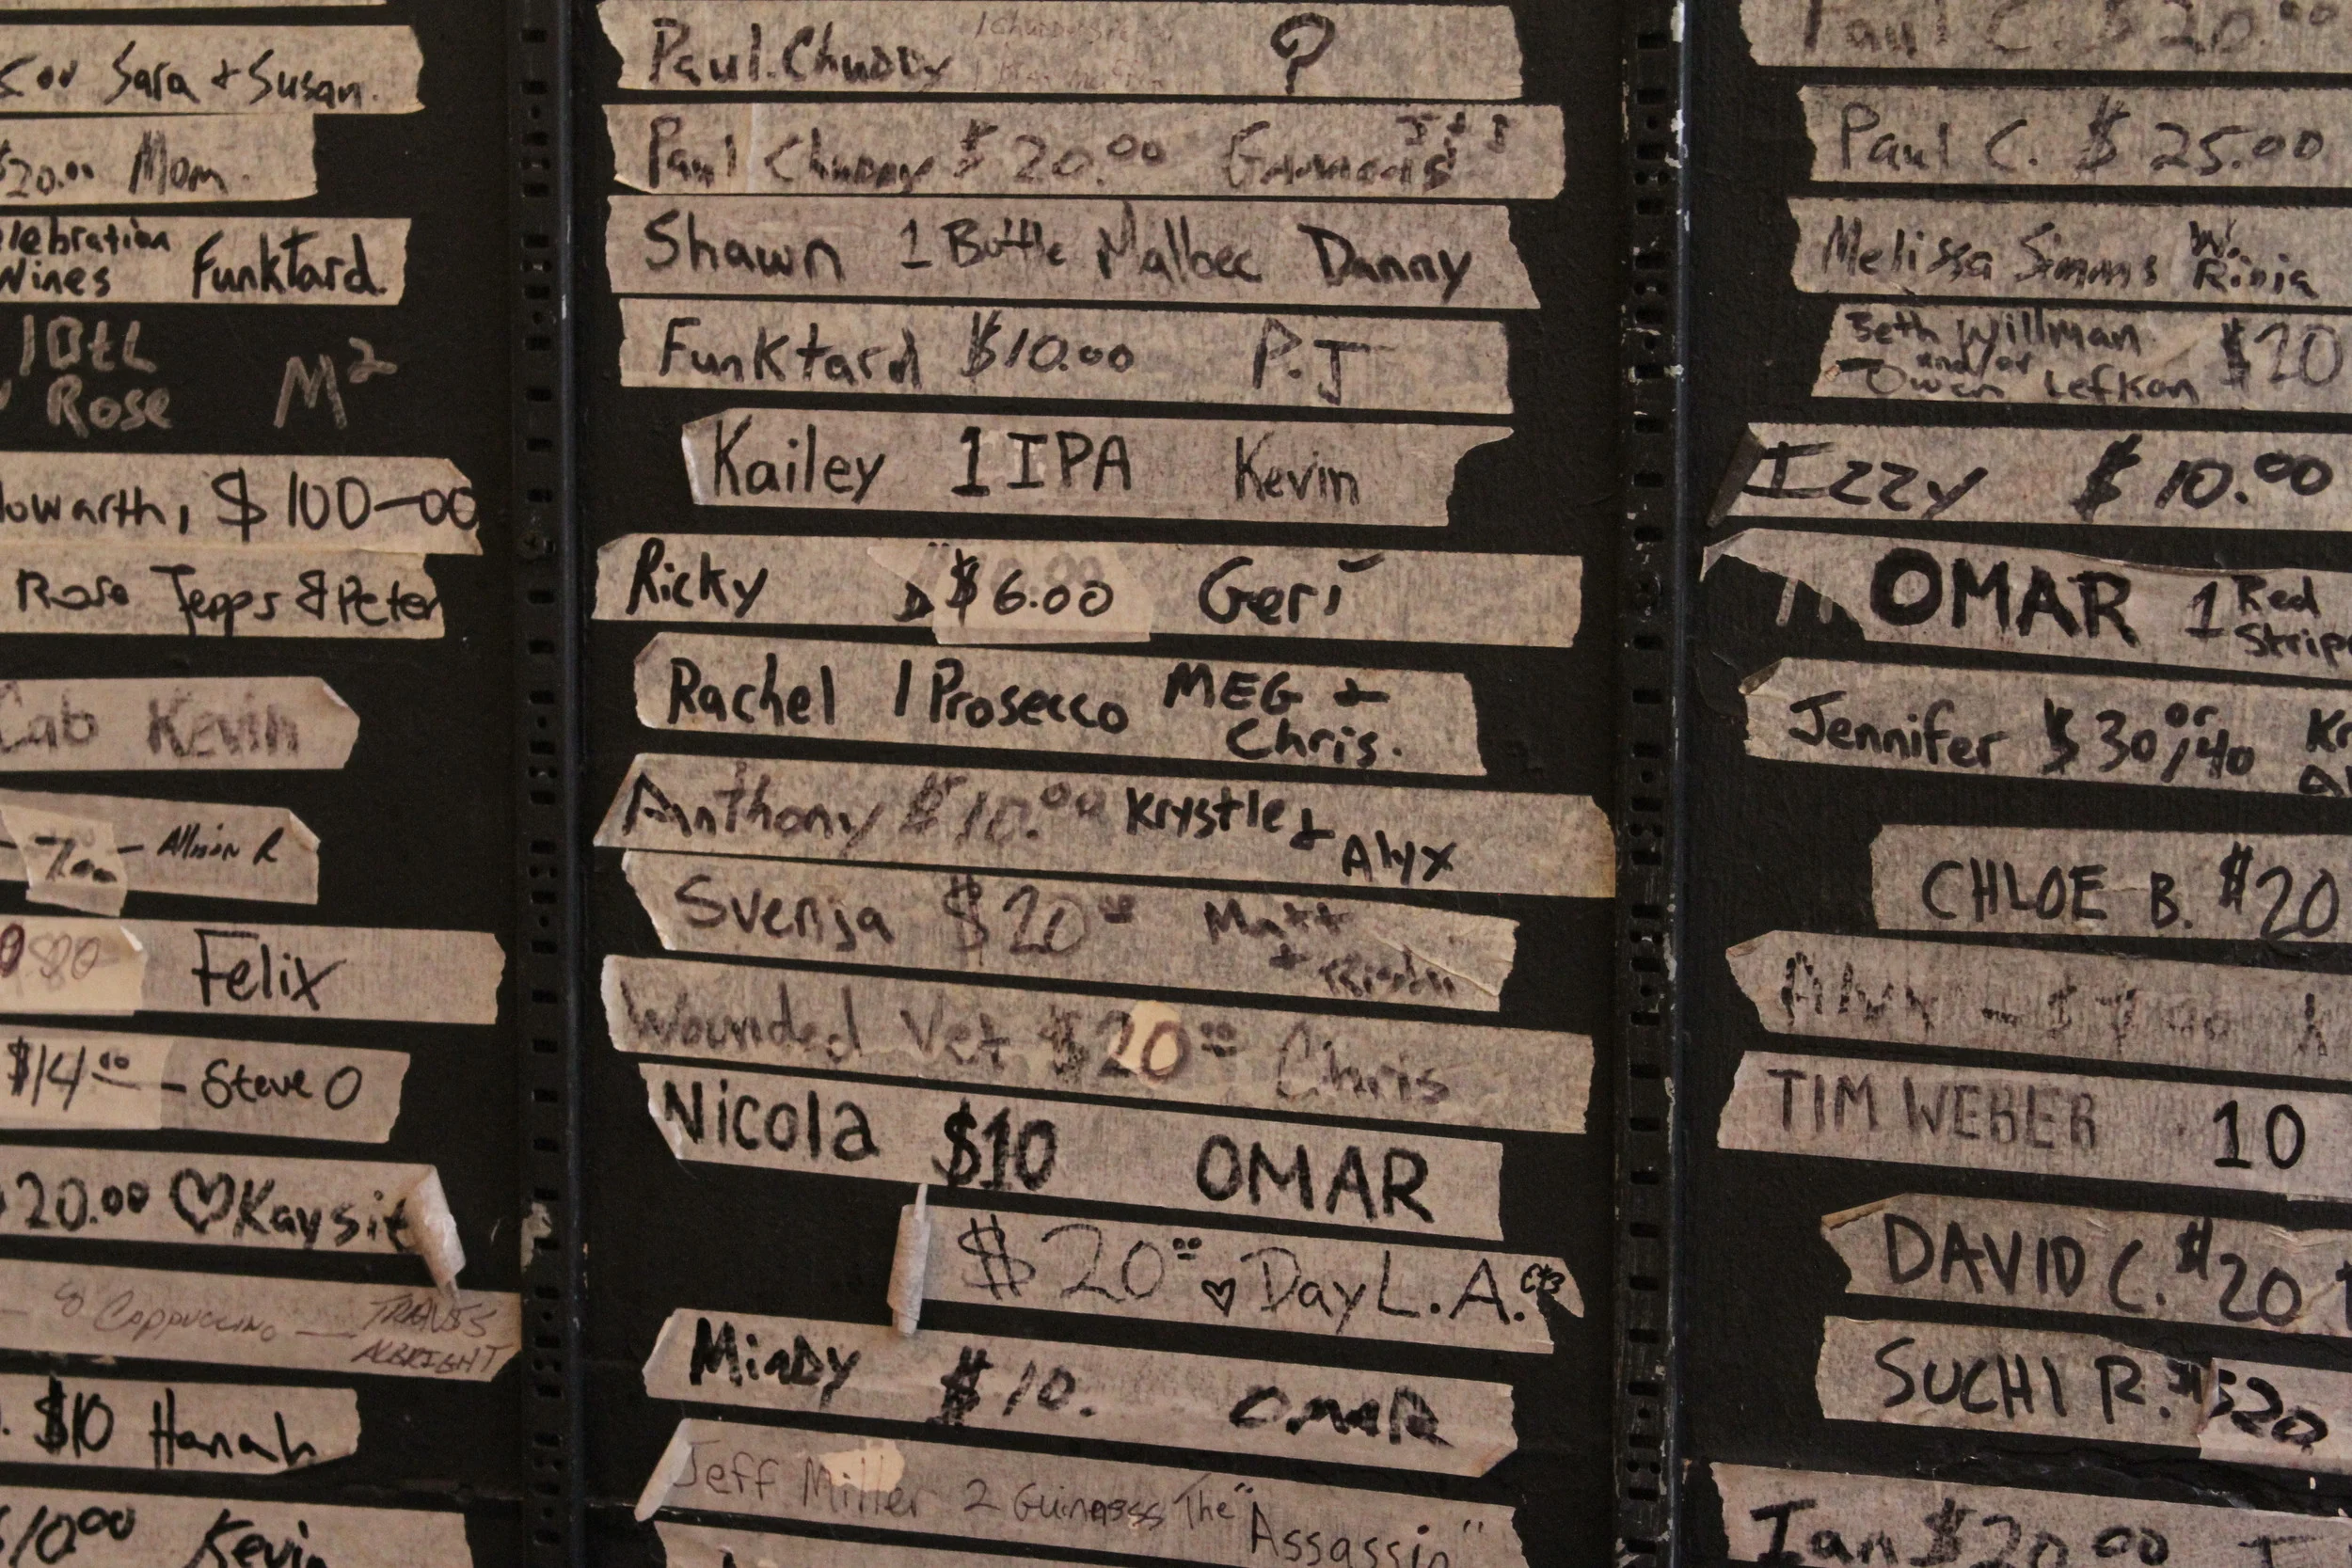 Sara + Susan.
$20.00 Mom.
lebration
Wines Funktard
1 Btl
Rose M²
owarth, $100-00
Rose Jepps & Peter
Cab Kevin
7.00 - Allison R
80 Felix
$14.00 - Steve O
20.00 ♡ Kaysit
8 Cappuccino — TRAVIS
ALBRIGHT
$10 Hanah
$10.00 Kevin
Paul. Chuddy ?
Paul Chuddy $20.00
Shawn 1 Bottle Malbec Danny
Funktard $10.00 P.J
Kailey 1 IPA Kevin
Ricky $6.00 Geri
Rachel 1 Prosecco MEG +
Chris.
Anthony $10.00 Krystle +
Alyx
Svenja $20.00 Matt
+
Wounded Vet $20.00 Chris
Nicola $10 OMAR
$20.00 ♡ Day L.A.
Mindy $10. OmaR
Jeff Miller 2 Guinness The "Assassin"
Paul C. $20.00
Paul C. $25.00
Melissa Simms W.
Rinia
Beth Willman $20
and/or
Owen Lefkon
Izzy $10.00
OMAR 1 Red
Strip
Jennifer $30 or /40 Kr
CHLOE B. $20
Alyx - $7.00
TIM WEBER 10
DAVID C. $20
SUCHI R. $20
Ian $20.00